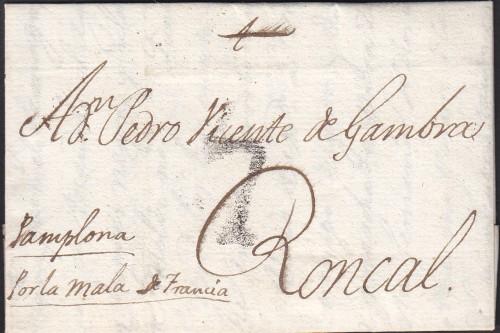 A Dn. Pedro Vicente de Gambra
7
Roncal.
Pamplona
Por la Mala de Francia